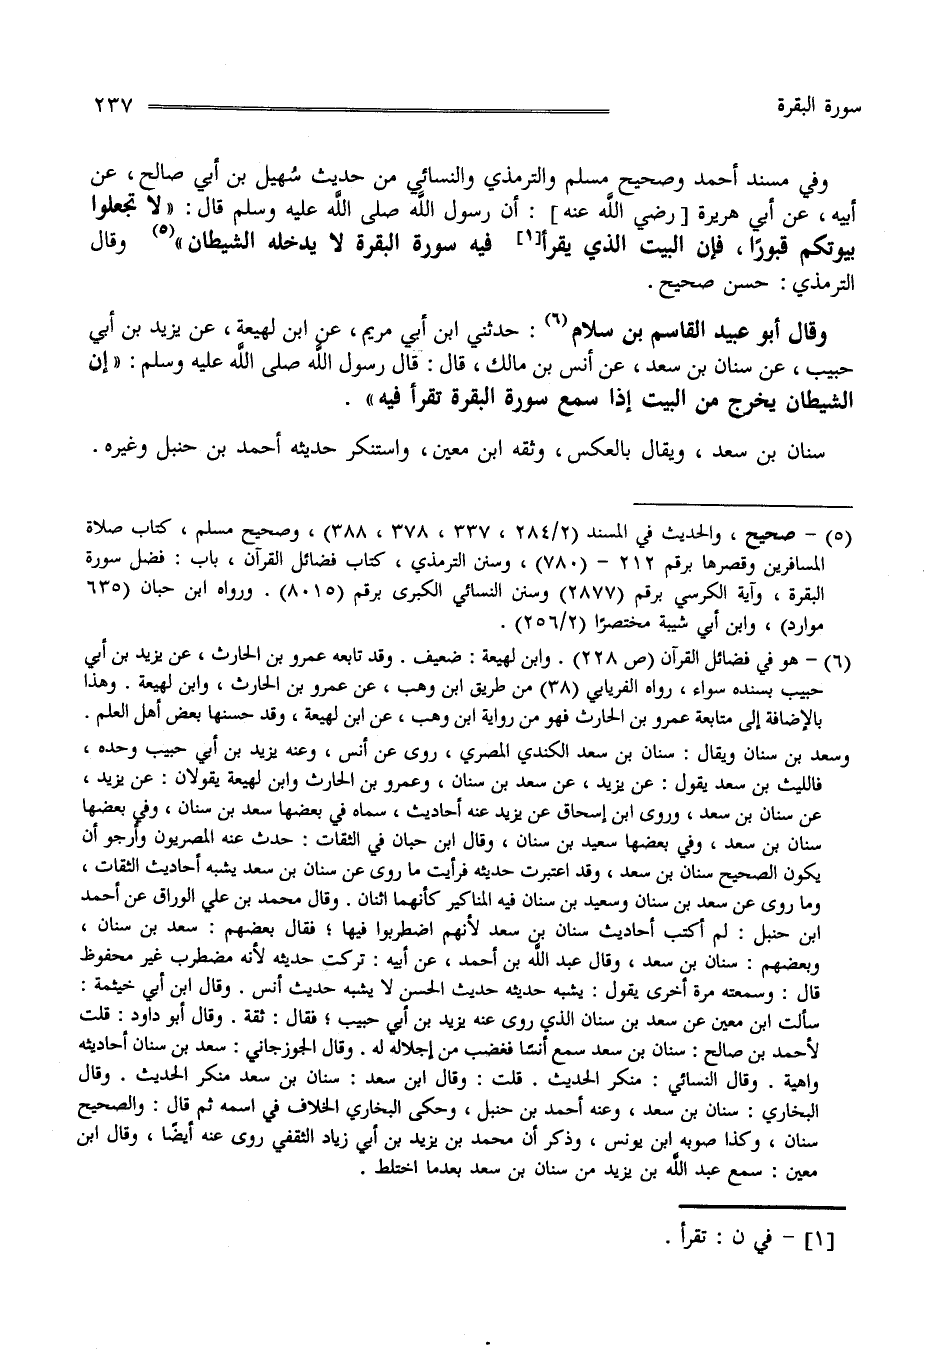 سورة البقرة ٢٣٧
وفي مسند أحمد وصحيح مسلم والترمذي والنسائي من حديث سُهيل بن أبي صالح ، عن
أبيه ، عن أبي هريرة [ رضي اللَّه عنه ] : أن رسول اللَّه صلى اللَّه عليه وسلم قال : « لا تجعلوا
بيوتكم قبورًا ، فإن البيت الذي يقرأ[١] فيه سورة البقرة لا يدخله الشيطان »(٥) وقال
الترمذي : حسن صحيح .
وقال أبو عبيد القاسم بن سلام(٦) : حدثني ابن أبي مريم ، عن ابن لهيعة ، عن يزيد بن أبي
حبيب ، عن سنان بن سعد ، عن أنس بن مالك ، قال : قال رسول اللَّه صلى اللَّه عليه وسلم : « إن
الشيطان يخرج من البيت إذا سمع سورة البقرة تقرأ فيه » .
سنان بن سعد ، ويقال بالعكس ، وثقه ابن معين ، واستنكر حديثه أحمد بن حنبل وغيره .
(٥) - صحيح ، والحديث في المسند (٢/ ٢٨٤ ، ٣٣٧ ، ٣٧٨ ، ٣٨٨) ، وصحيح مسلم ، كتاب صلاة
المسافرين وقصرها برقم ٢١٢ - (٧٨٠) ، وسنن الترمذي ، كتاب فضائل القرآن ، باب : فضل سورة
البقرة ، وآية الكرسي برقم (٢٨٧٧) وسنن النسائي الكبرى برقم (٨٠١٥) . ورواه ابن حبان (٦٣٥
موارد) ، وابن أبي شيبة مختصرًا (٢٥٦/٢) .
(٦) - هو في فضائل القرآن (ص ٢٢٨) . وابن لهيعة : ضعيف . وقد تابعه عمرو بن الحارث ، عن يزيد بن أبي
حبيب بسنده سواء ، رواه الفريابي (٣٨) من طريق ابن وهب ، عن عمرو بن الحارث ، وابن لهيعة . وهذا
بالإضافة إلى متابعة عمرو بن الحارث فهو من رواية ابن وهب ، عن ابن لهيعة ، وقد حسنها بعض أهل العلم .
وسعد بن سنان ويقال : سنان بن سعد الكندي المصري ، روى عن أنس ، وعنه يزيد بن أبي حبيب وحده ،
فالليث بن سعد يقول : عن يزيد ، عن سعد بن سنان ، وعمرو بن الحارث وابن لهيعة يقولان : عن يزيد ،
عن سنان بن سعد ، وروى ابن إسحاق عن يزيد عنه أحاديث ، سماه في بعضها سعد بن سنان ، وفي بعضها
سنان بن سعد ، وفي بعضها سعيد بن سنان ، وقال ابن حبان في الثقات : حدث عنه المصريون وأرجو أن
يكون الصحيح سنان بن سعد ، وقد اعتبرت حديثه فرأيت ما روى عن سنان بن سعد يشبه أحاديث الثقات ،
وما روى عن سعد بن سنان وسعيد بن سنان فيه المناكير كأنهما اثنان . وقال محمد بن علي الوراق عن أحمد
ابن حنبل : لم أكتب أحاديث سنان بن سعد لأنهم اضطربوا فيها ؛ فقال بعضهم : سعد بن سنان ،
وبعضهم : سنان بن سعد ، وقال عبد اللَّه بن أحمد ، عن أبيه : تركت حديثه لأنه مضطرب غير محفوظ
قال : وسمعته مرة أخرى يقول : يشبه حديثه حديث الحسن لا يشبه حديث أنس . وقال ابن أبي خيثمة :
سألت ابن معين عن سعد بن سنان الذي روى عنه يزيد بن أبي حبيب ؛ فقال : ثقة . وقال أبو داود : قلت
لأحمد بن صالح : سنان بن سعد سمع أنسًا فغضب من إجلاله له . وقال الجوزجاني : سعد بن سنان أحاديثه
واهية . وقال النسائي : منكر الحديث . قلت : وقال ابن سعد : سنان بن سعد منكر الحديث . وقال
البخاري : سنان بن سعد ، وعنه أحمد بن حنبل ، وحكى البخاري الخلاف في اسمه ثم قال : والصحيح
سنان ، وكذا صوبه ابن يونس ، وذكر أن محمد بن يزيد بن أبي زياد الثقفي روى عنه أيضًا ، وقال ابن
معين : سمع عبد اللَّه بن يزيد من سنان بن سعد بعدما اختلط .
[١] - في ن : تقرأ .